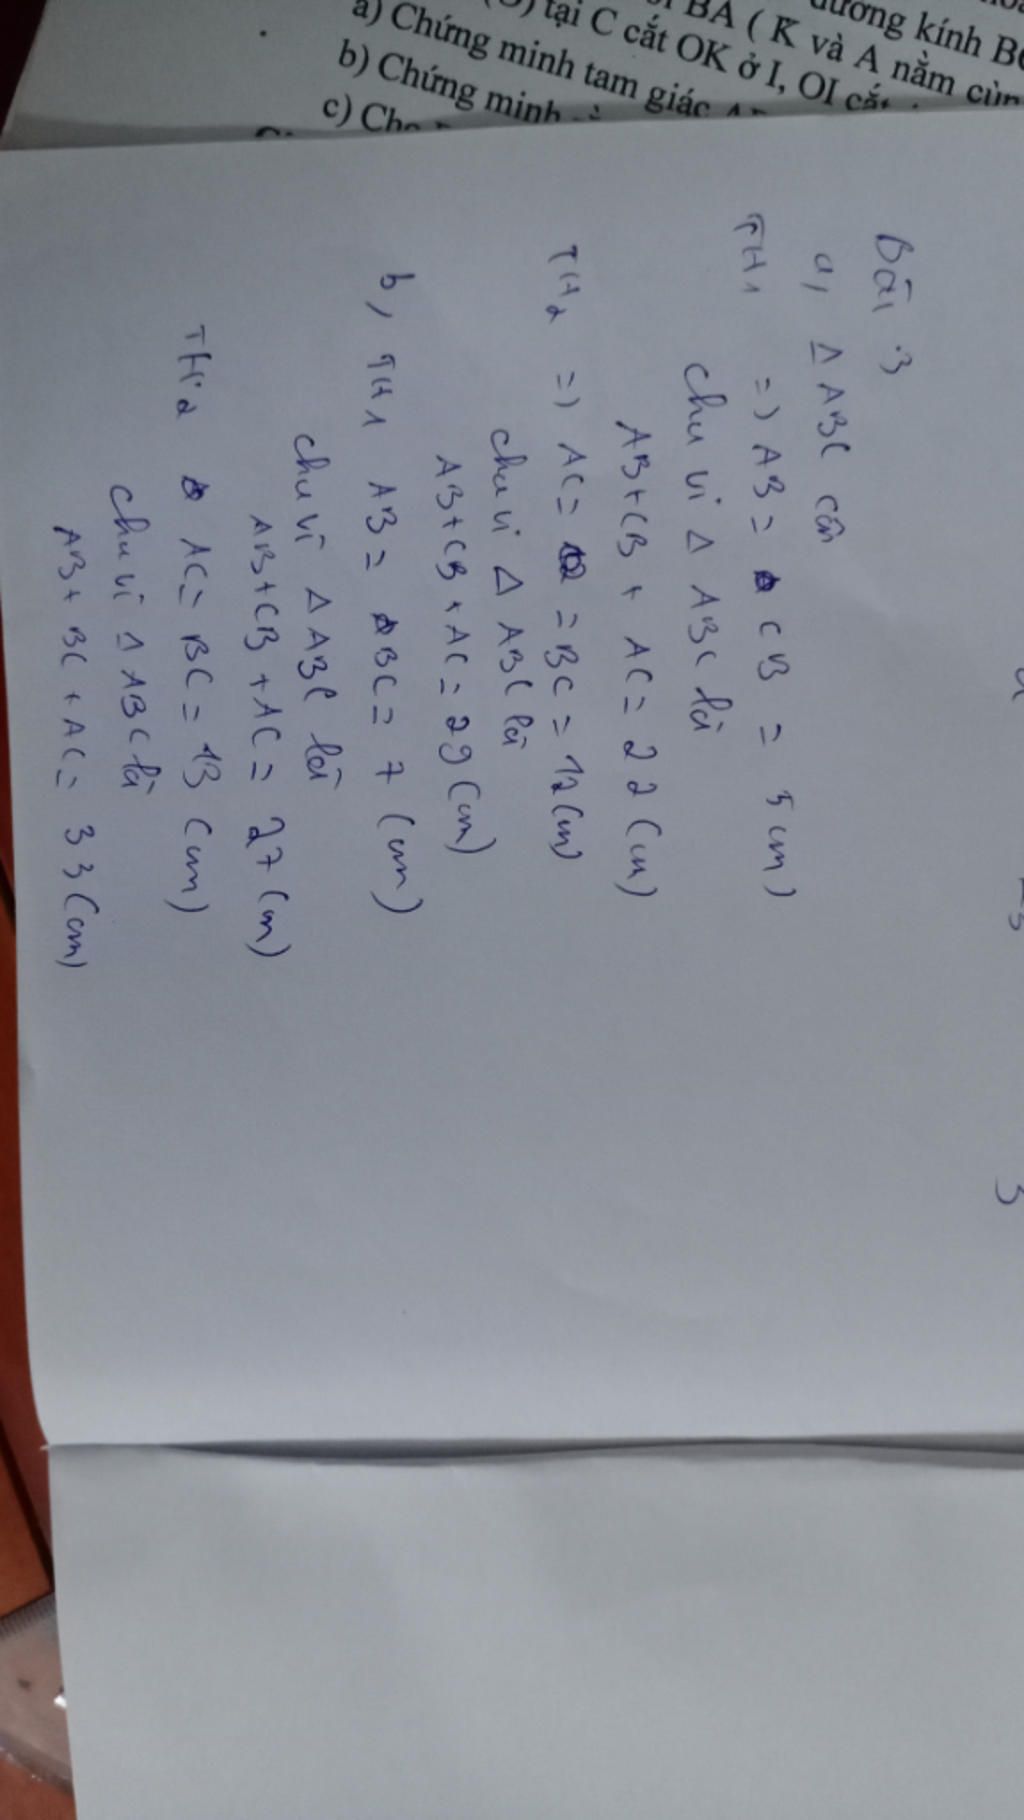 đường kính B
BA ( K và A nằm cùn
) tại C cắt OK ở I, OI cắt
a) Chứng minh tam giác
b) Chứng minh
c) Cho
Bài 3
a, Δ ABC cân
TH1 => AB = CB = 5 cm)
chu vi Δ ABC là
AB + CB + AC = 22 (cm)
TH2 => AC = = BC = 12 (cm)
chu vi Δ ABC là
AB + CB + AC = 29 (cm)
b, TH1 AB = BC = 7 (cm)
chu vi Δ ABC là
AB + CB + AC = 27 (cm)
TH2 AC = BC = 13 (cm)
chu vi Δ ABC là
AB + BC + AC = 33 (cm)
3